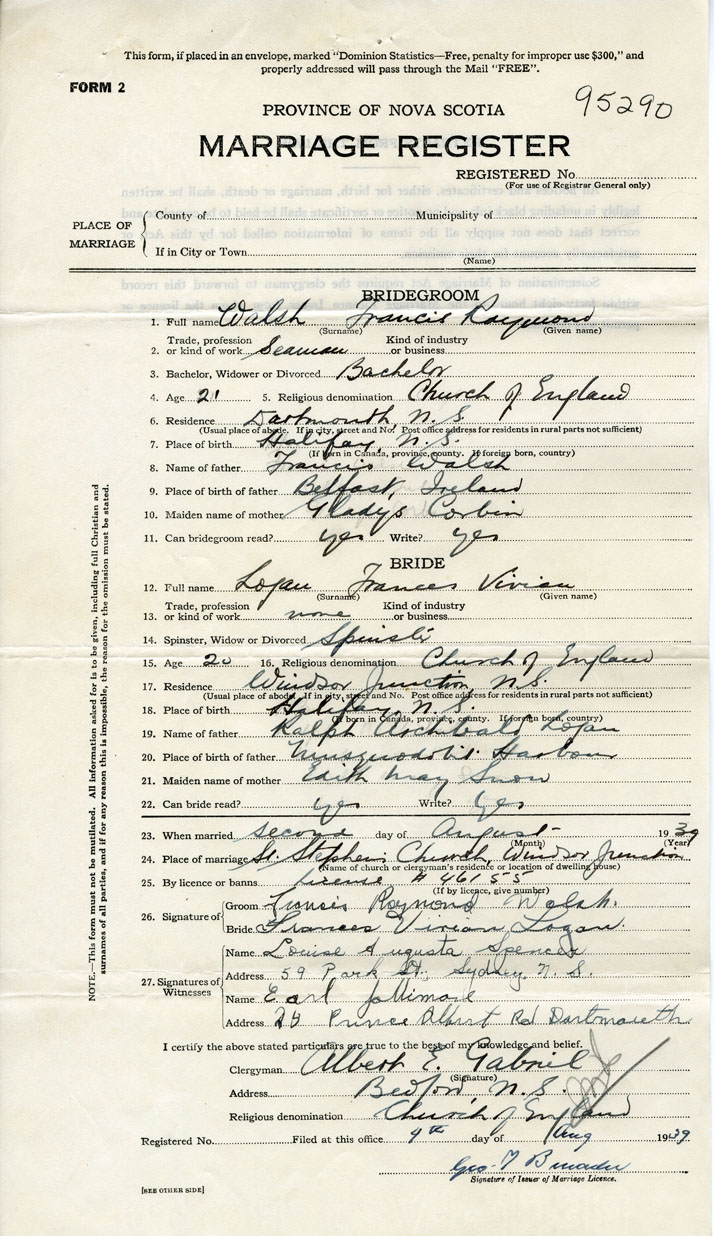 This form, if placed in an envelope, marked "Dominion Statistics—Free, penalty for improper use $300," and
properly addressed will pass through the Mail "FREE".
FORM 2
95290
PROVINCE OF NOVA SCOTIA
MARRIAGE REGISTER
REGISTERED No.
(For use of Registrar General only)
PLACE OF MARRIAGE
County of Municipality of
If in City or Town
(Name)
BRIDEGROOM
1. Full name Walsh Francis Raymond
(Surname) (Given name)
Trade, profession Kind of industry
2. or kind of work Seaman or business
3. Bachelor, Widower or Divorced Bachelor
4. Age 21 5. Religious denomination Church of England
6. Residence Dartmouth N.S.
(Usual place of abode. If in city, street and No. Post office address for residents in rural parts not sufficient)
7. Place of birth Halifax N.S.
(If born in Canada, province, county. If foreign born, country)
8. Name of father Francis Walsh
9. Place of birth of father Belfast, Ireland
10. Maiden name of mother Gladys Corbin
11. Can bridegroom read? yes Write? yes
BRIDE
12. Full name Logan Frances Vivian
(Surname) (Given name)
Trade, profession Kind of industry
13. or kind of work none or business
14. Spinster, Widow or Divorced
15. Age 20 16. Religious denomination Church of England
17. Residence Windsor Junction, N.S.
(Usual place of abode. If in city, street and No. Post office address for residents in rural parts not sufficient)
18. Place of birth Halifax N.S.
(If born in Canada, province, county. If foreign born, country)
19. Name of father Ralph Archibald Logan
20. Place of birth of father Musquodobit Harbour
21. Maiden name of mother Edith May Snow
22. Can bride read? yes Write? Yes
23. When married second day of August 1939
(Month) (Year)
24. Place of marriage St. Stephen's Church, Windsor Junction
(Name of church or clergyman's residence or location of dwelling house)
25. By licence or banns license #
(If by licence, give number)
26. Signature of
Groom Francis Raymond Walsh.
Bride Frances Vivian Logan.
27. Signatures of Witnesses
Name Louise Augusta Spencer
Address 59 Park St., Sydney N.S.
Name Earl Jollimore
Address Prince Albert Rd Dartmouth
I certify the above stated particulars are true to the best of my knowledge and belief.
Clergyman Albert E. Gabriel
(Signature)
Address Bedford, N.S.
Religious denomination Church of England
Registered No. Filed at this office 4th day of Aug 1939
Geo.
Signature of Issuer of Marriage Licence.
[SEE OTHER SIDE]
NOTE.—This form must not be mutilated. All information asked for is to be given, including full Christian and
surnames of all parties, and if for any reason this is impossible, the reason for the omission must be stated.